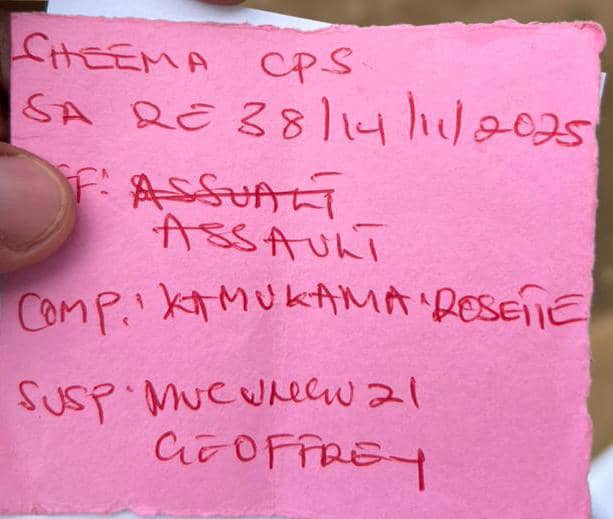 SHEEMA CPS
SA RE 38/14/11/2025
F: ASSUALT
ASSAULT
COMP: KAMUKAMA ROSETTE
SUSP.
GEOFFREY